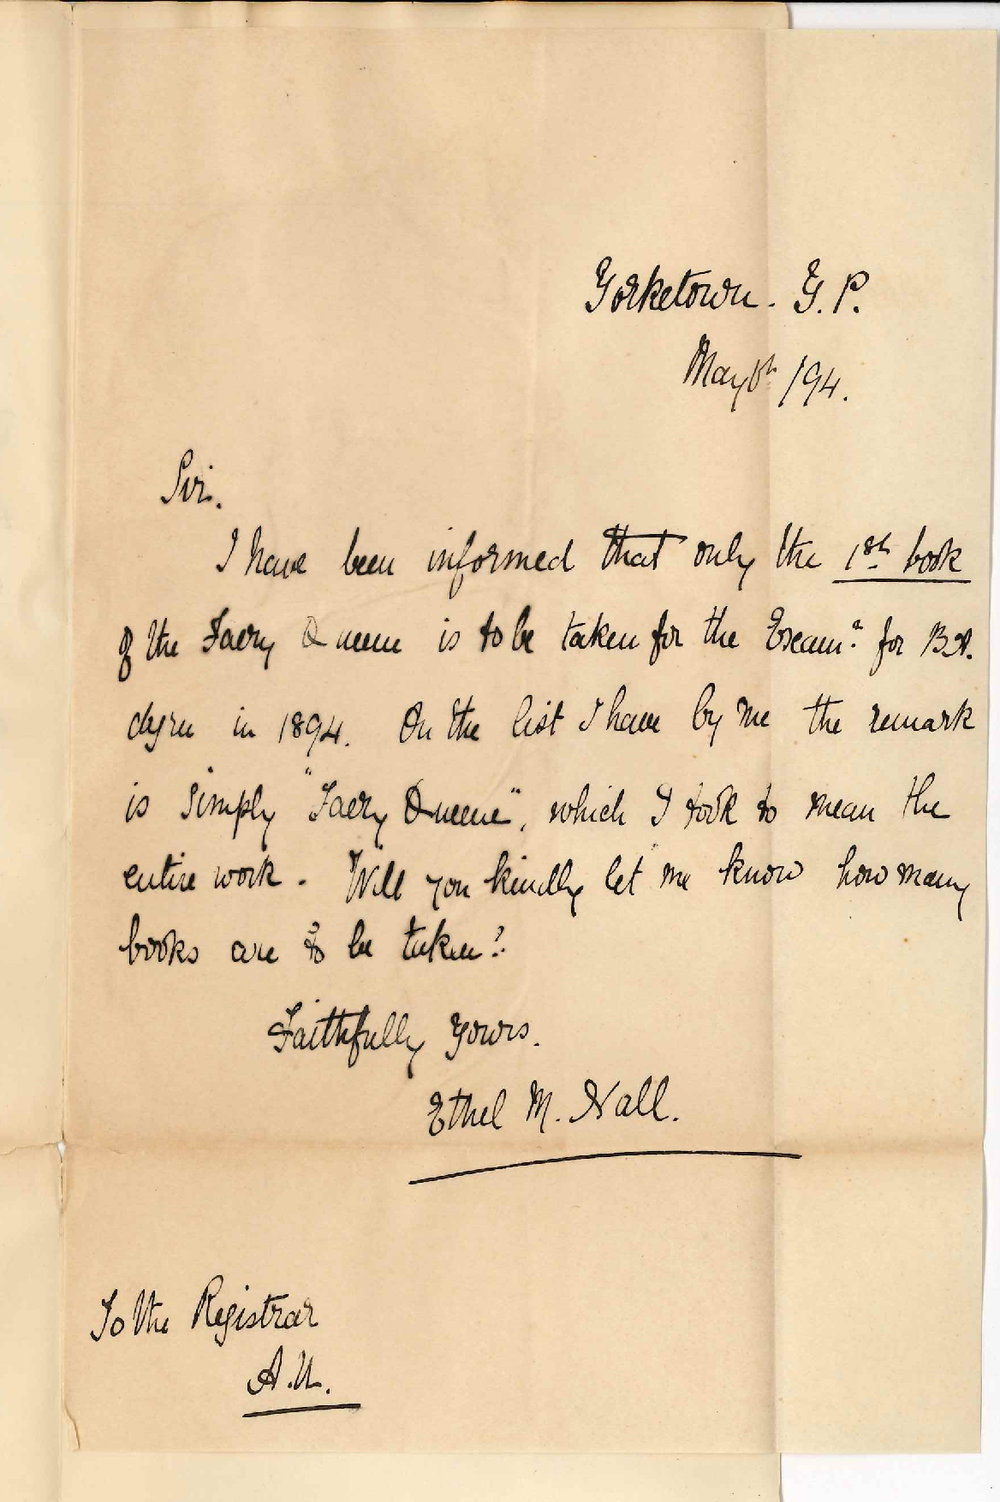 Yorketown. Y. P.
May 6th /94.
Sir.
I have been informed that only the 1st book
of the Faery Queene is to be taken for the Examn. for B.A.
degree in 1894. On the list I have by me the remark
is simply "Faery Queene", which I took to mean the
entire work. Will you kindly let me know how many
books are to be taken?
Faithfully Yours.
Ethel M. Nall.
To the Registrar
A.U.